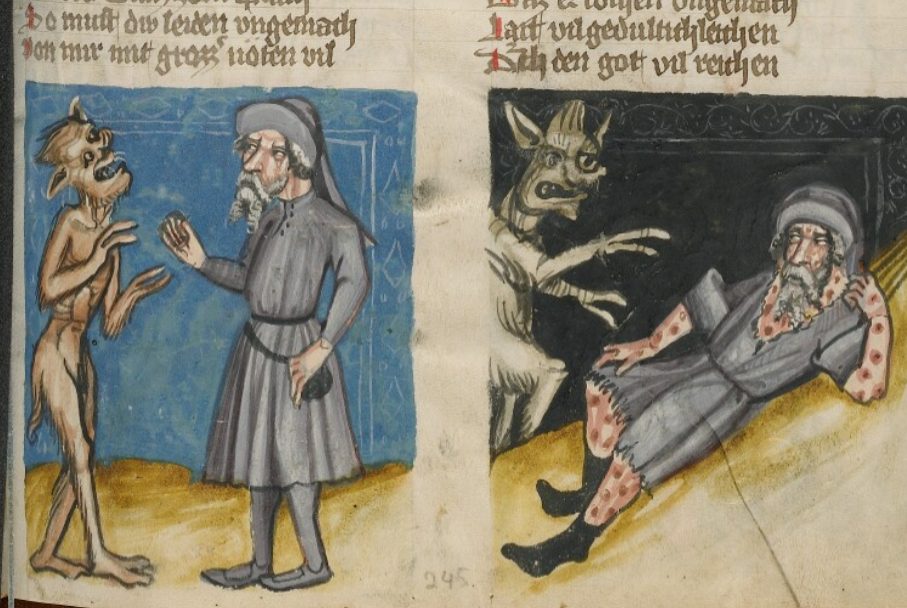 So must du leiden vngemach
von mir mit groz' noten vil
vngemach
Lait vil gedultichleichen
Ich den got vil reichen
245